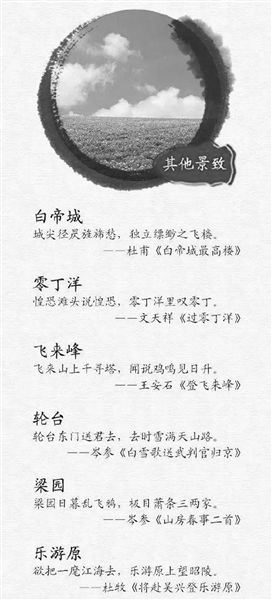 其他景致
白帝城
城尖径昃旌旆愁，独立缥缈之飞楼。
——杜甫《白帝城最高楼》
零丁洋
惶恐滩头说惶恐，零丁洋里叹零丁。
——文天祥《过零丁洋》
飞来峰
飞来山上千寻塔，闻说鸡鸣见日升。
——王安石《登飞来峰》
轮台
轮台东门送君去，去时雪满天山路。
——岑参《白雪歌送武判官归京》
梁园
梁园日暮乱飞鸦，极目萧条三两家。
——岑参《山房春事二首》
乐游原
欲把一麾江海去，乐游原上望昭陵。
——杜牧《将赴吴兴登乐游原》